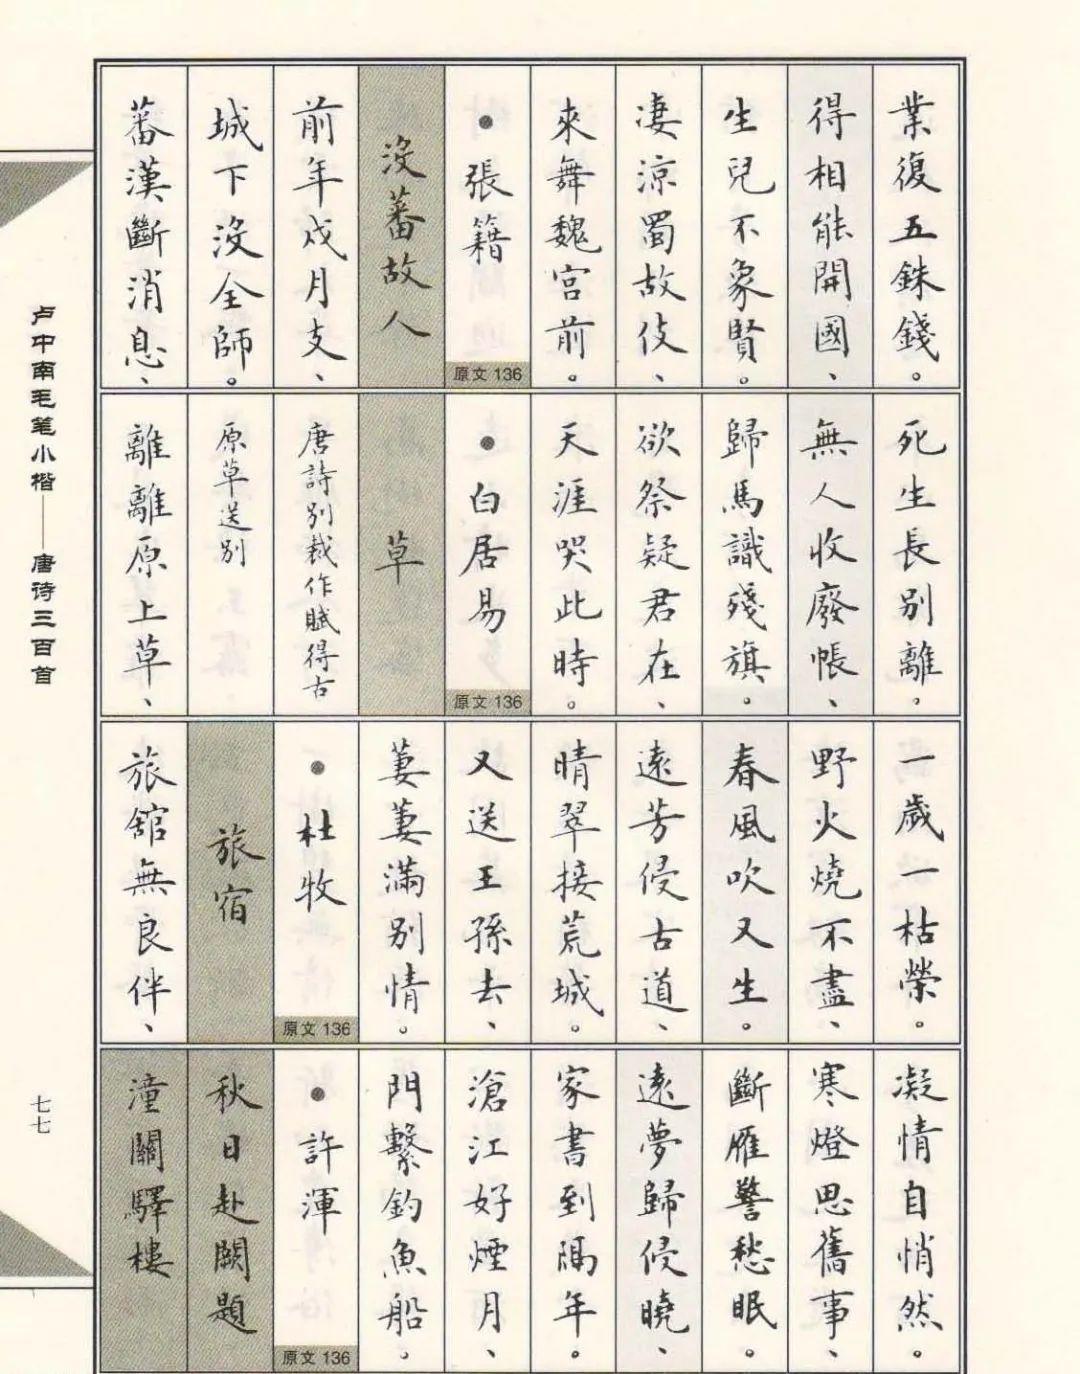 業復五銖錢。
得相能開國、
生兒不象賢。
淒涼蜀故伎、
來舞魏宮前。
●張籍
原文 136
沒蕃故人
前年戍月支、
城下沒全師。
蕃漢斷消息、
死生長別離。
無人收廢帳、
歸馬識殘旗。
欲祭疑君在、
天涯哭此時。
●白居易
原文 136
草
唐詩別裁作賦得古
原草送別
離離原上草、
一歲一枯榮。
野火燒不盡、
春風吹又生。
遠芳侵古道、
晴翠接荒城。
又送王孫去、
萋萋滿別情。
●杜牧
原文 136
旅宿
旅館無良伴、
凝情自悄然。
寒燈思舊事、
斷雁警愁眠。
遠夢歸侵曉、
家書到隔年。
滄江好煙月、
門繫釣魚船。
●許渾
原文 136
秋日赴闕題
潼關驛樓
卢中南毛笔小楷——唐诗三百首
七七